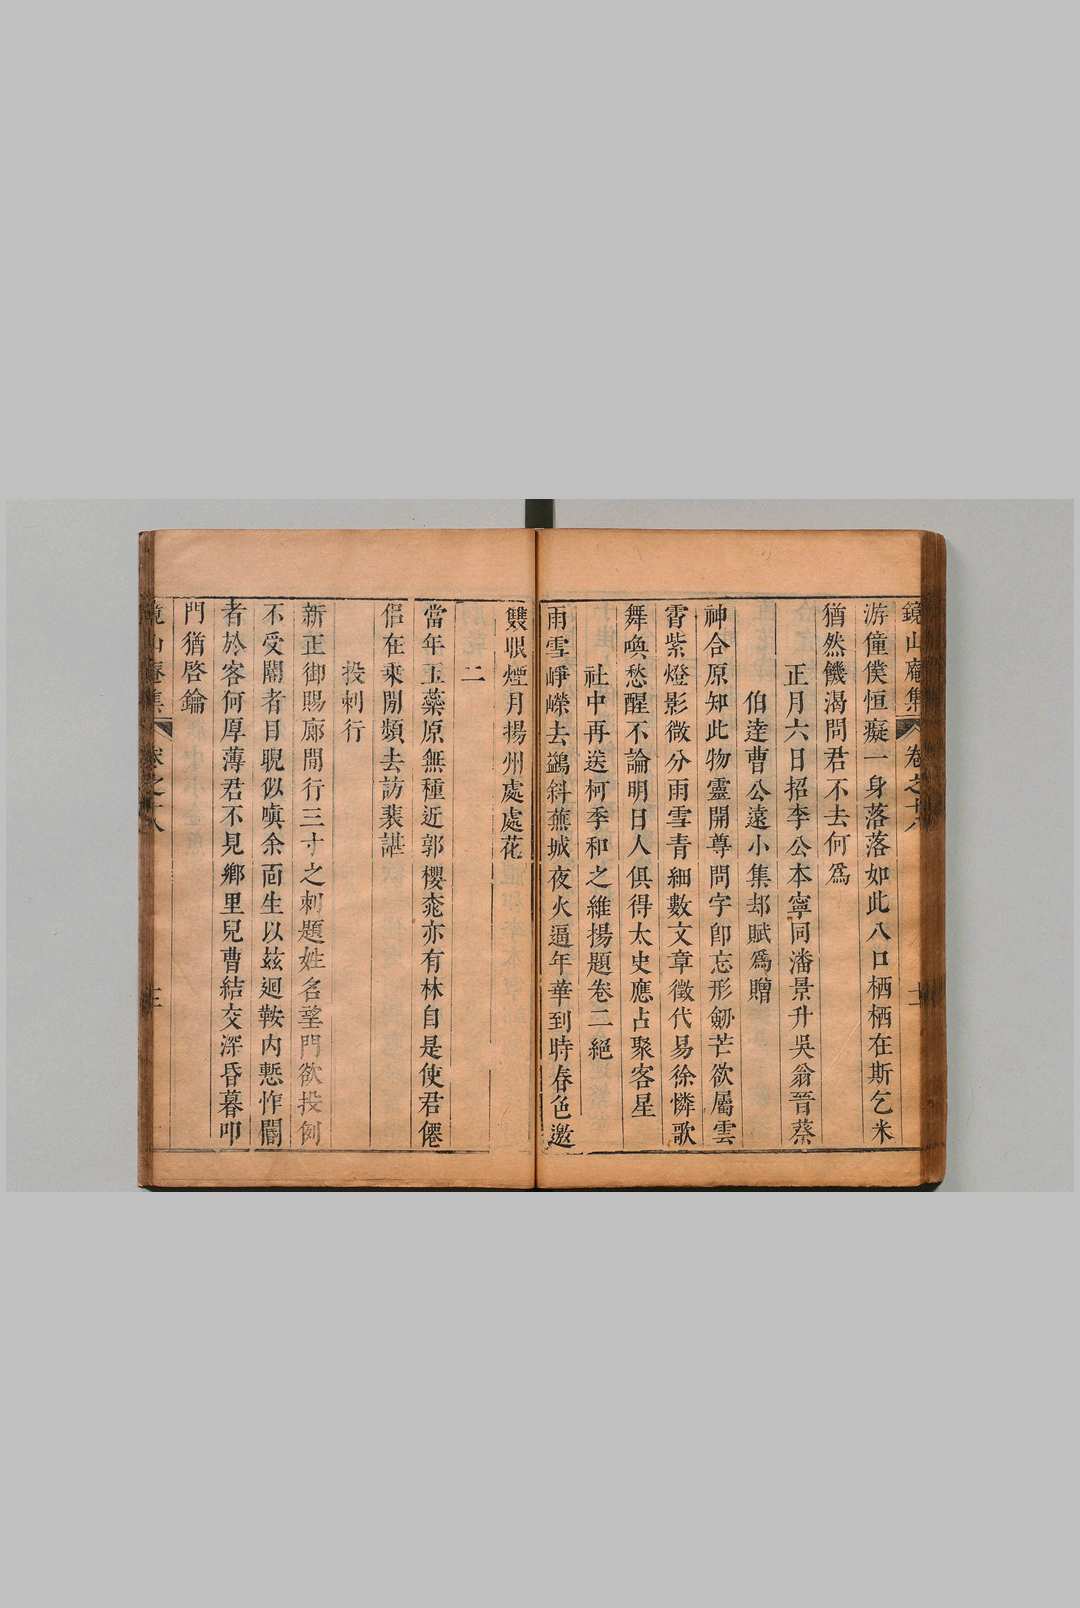 鏡山庵集 卷之十八
游僮僕恒癡一身落落如此八口栖栖在斯乞米
猶然饑渴問君不去何爲
正月六日招李公本寧同潘景升吳翁晉蔡
伯達曹公遠小集却賦爲贈
神合原知此物靈開尊問字卽忘形劒芒欲屬雲
霄紫燈影微分雨雪青細數文章徵代易徐憐歌
舞喚愁醒不論明日人俱得太史應占聚客星
社中再送柯季和之維揚題卷二絕
雨雪崢嶸去鷁斜蕪城夜火逼年華到時春色邀
雙眼煙月揚州處處花
二
當年玉蘂原無種近郭櫻桃亦有林自是使君僊
侶在乗閒頻去訪裴諶
投刺行
新正御賜廊閒行三寸之刺題姓名望門欲投例
不受閽者目睨似嗔余面生以玆迴鞍内慙怍閽
者於客何厚薄君不見鄉里兒曹結交深昏暮叩
門猶啓鑰
鏡山庵集 卷之十八